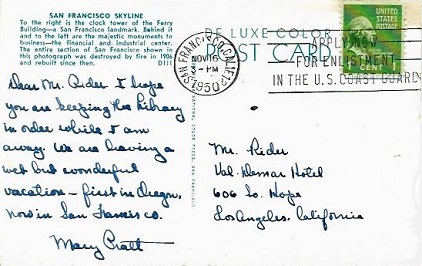 SAN FRANCISCO SKYLINE
To the right is the clock tower of the Ferry
Building—a San Francisco landmark. Behind it
and to the left are the majestic monuments to
business—the financial and industrial center.
The entire section of San Francisco shown in
this photograph was destroyed by fire in 1906
and rebuilt since then. D111
Dear Mr. Rider I hope
you are keeping the library
in order while I am
away. We are having a
wet but wonderful
vacation – first in Oregon,
now in San Francisco.
Mary Pratt
DE LUXE COLOR
POST CARD
SAN FRANCISCO, CALIF.
NOV 16
- PM
1950
APPLY NOW
FOR ENLISTMENT
IN THE U.S. COAST GUARD
UNITED STATES
POSTAGE
1
CENT
Mr. Rider
Val-Demar Hotel
606 So. Hope
Los Angeles, California